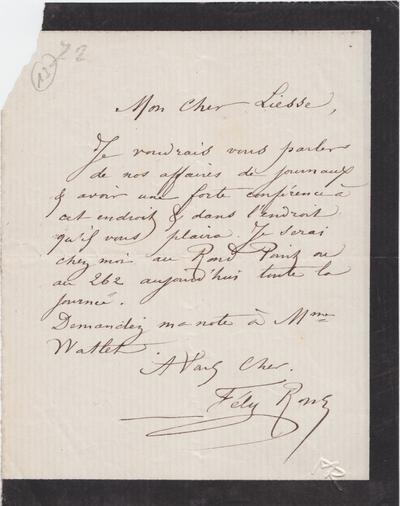 (12)
72
Mon Cher Liesse,
Je voudrais vous parler
de nos affaires de journaux
& avoir une forte conférence à
cet endroit & dans l'endroit
qu'il vous plaira. Je serai
chez moi au Rond Point ou
au 262 aujourd'hui toute la
journée.
Demandez ma note à Mme
Watlet
A Vous Cher.
Fély Rops